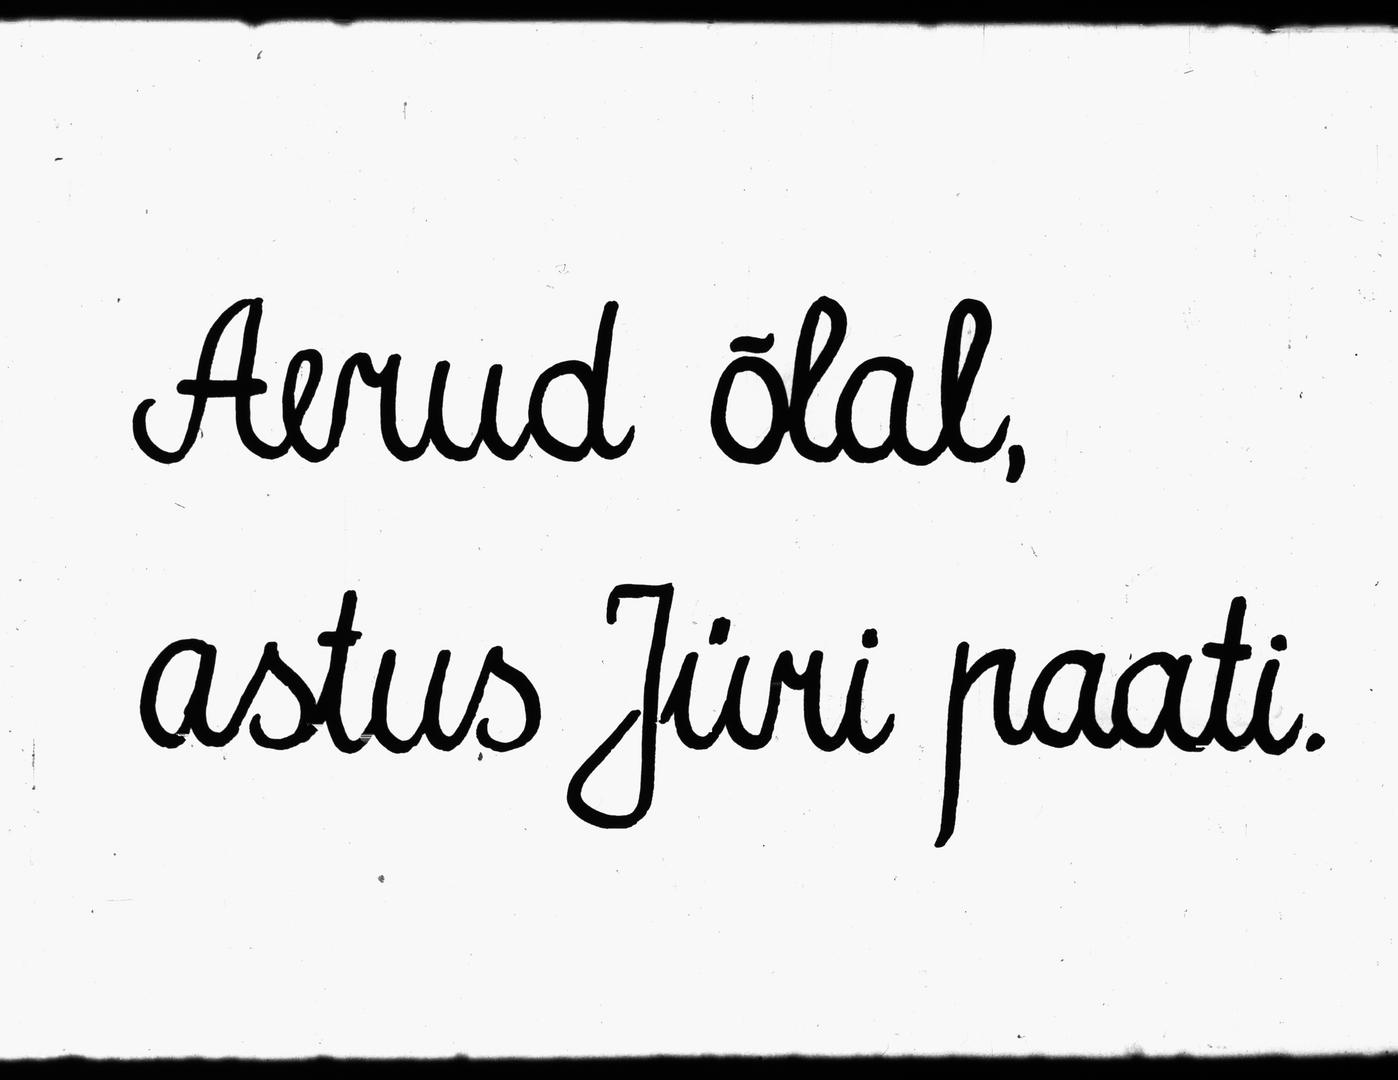 Aerud õlal,
astus Jüri paati.